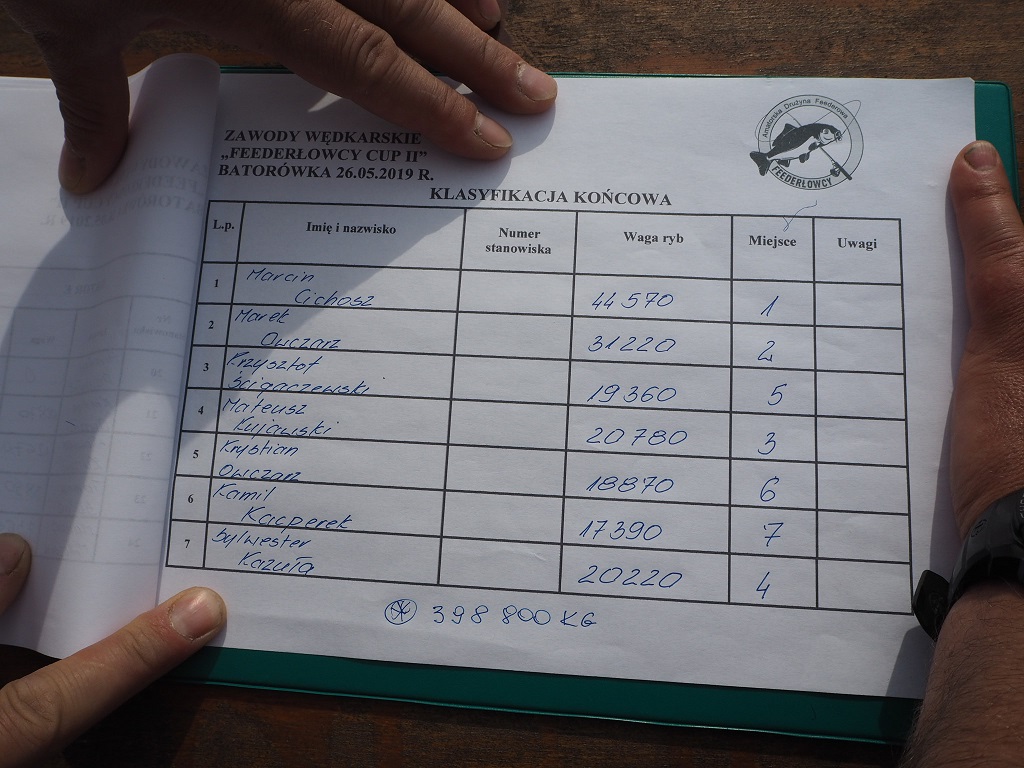 ZAWODY WĘDKARSKIE
„FEEDERŁOWCY CUP II”
BATORÓWKA 26.05.2019 R.
Amatorska Drużyna Feederowa
FEEDERŁOWCY
KLASYFIKACJA KOŃCOWA
L.p. Imię i nazwisko Numer stanowiska Waga ryb Miejsce Uwagi
1 Marcin Cichosz 44 570 1
2 Marek Owczarz 31 220 2
3 Krzysztof 19 360 5
4 Mateusz Kujawski 20 780 3
5 Krystian Owczarz 18870 6
6 Kamil Kacperek 17 390 7
7 Sylwester Kazuła 20220 4
398 800 KG